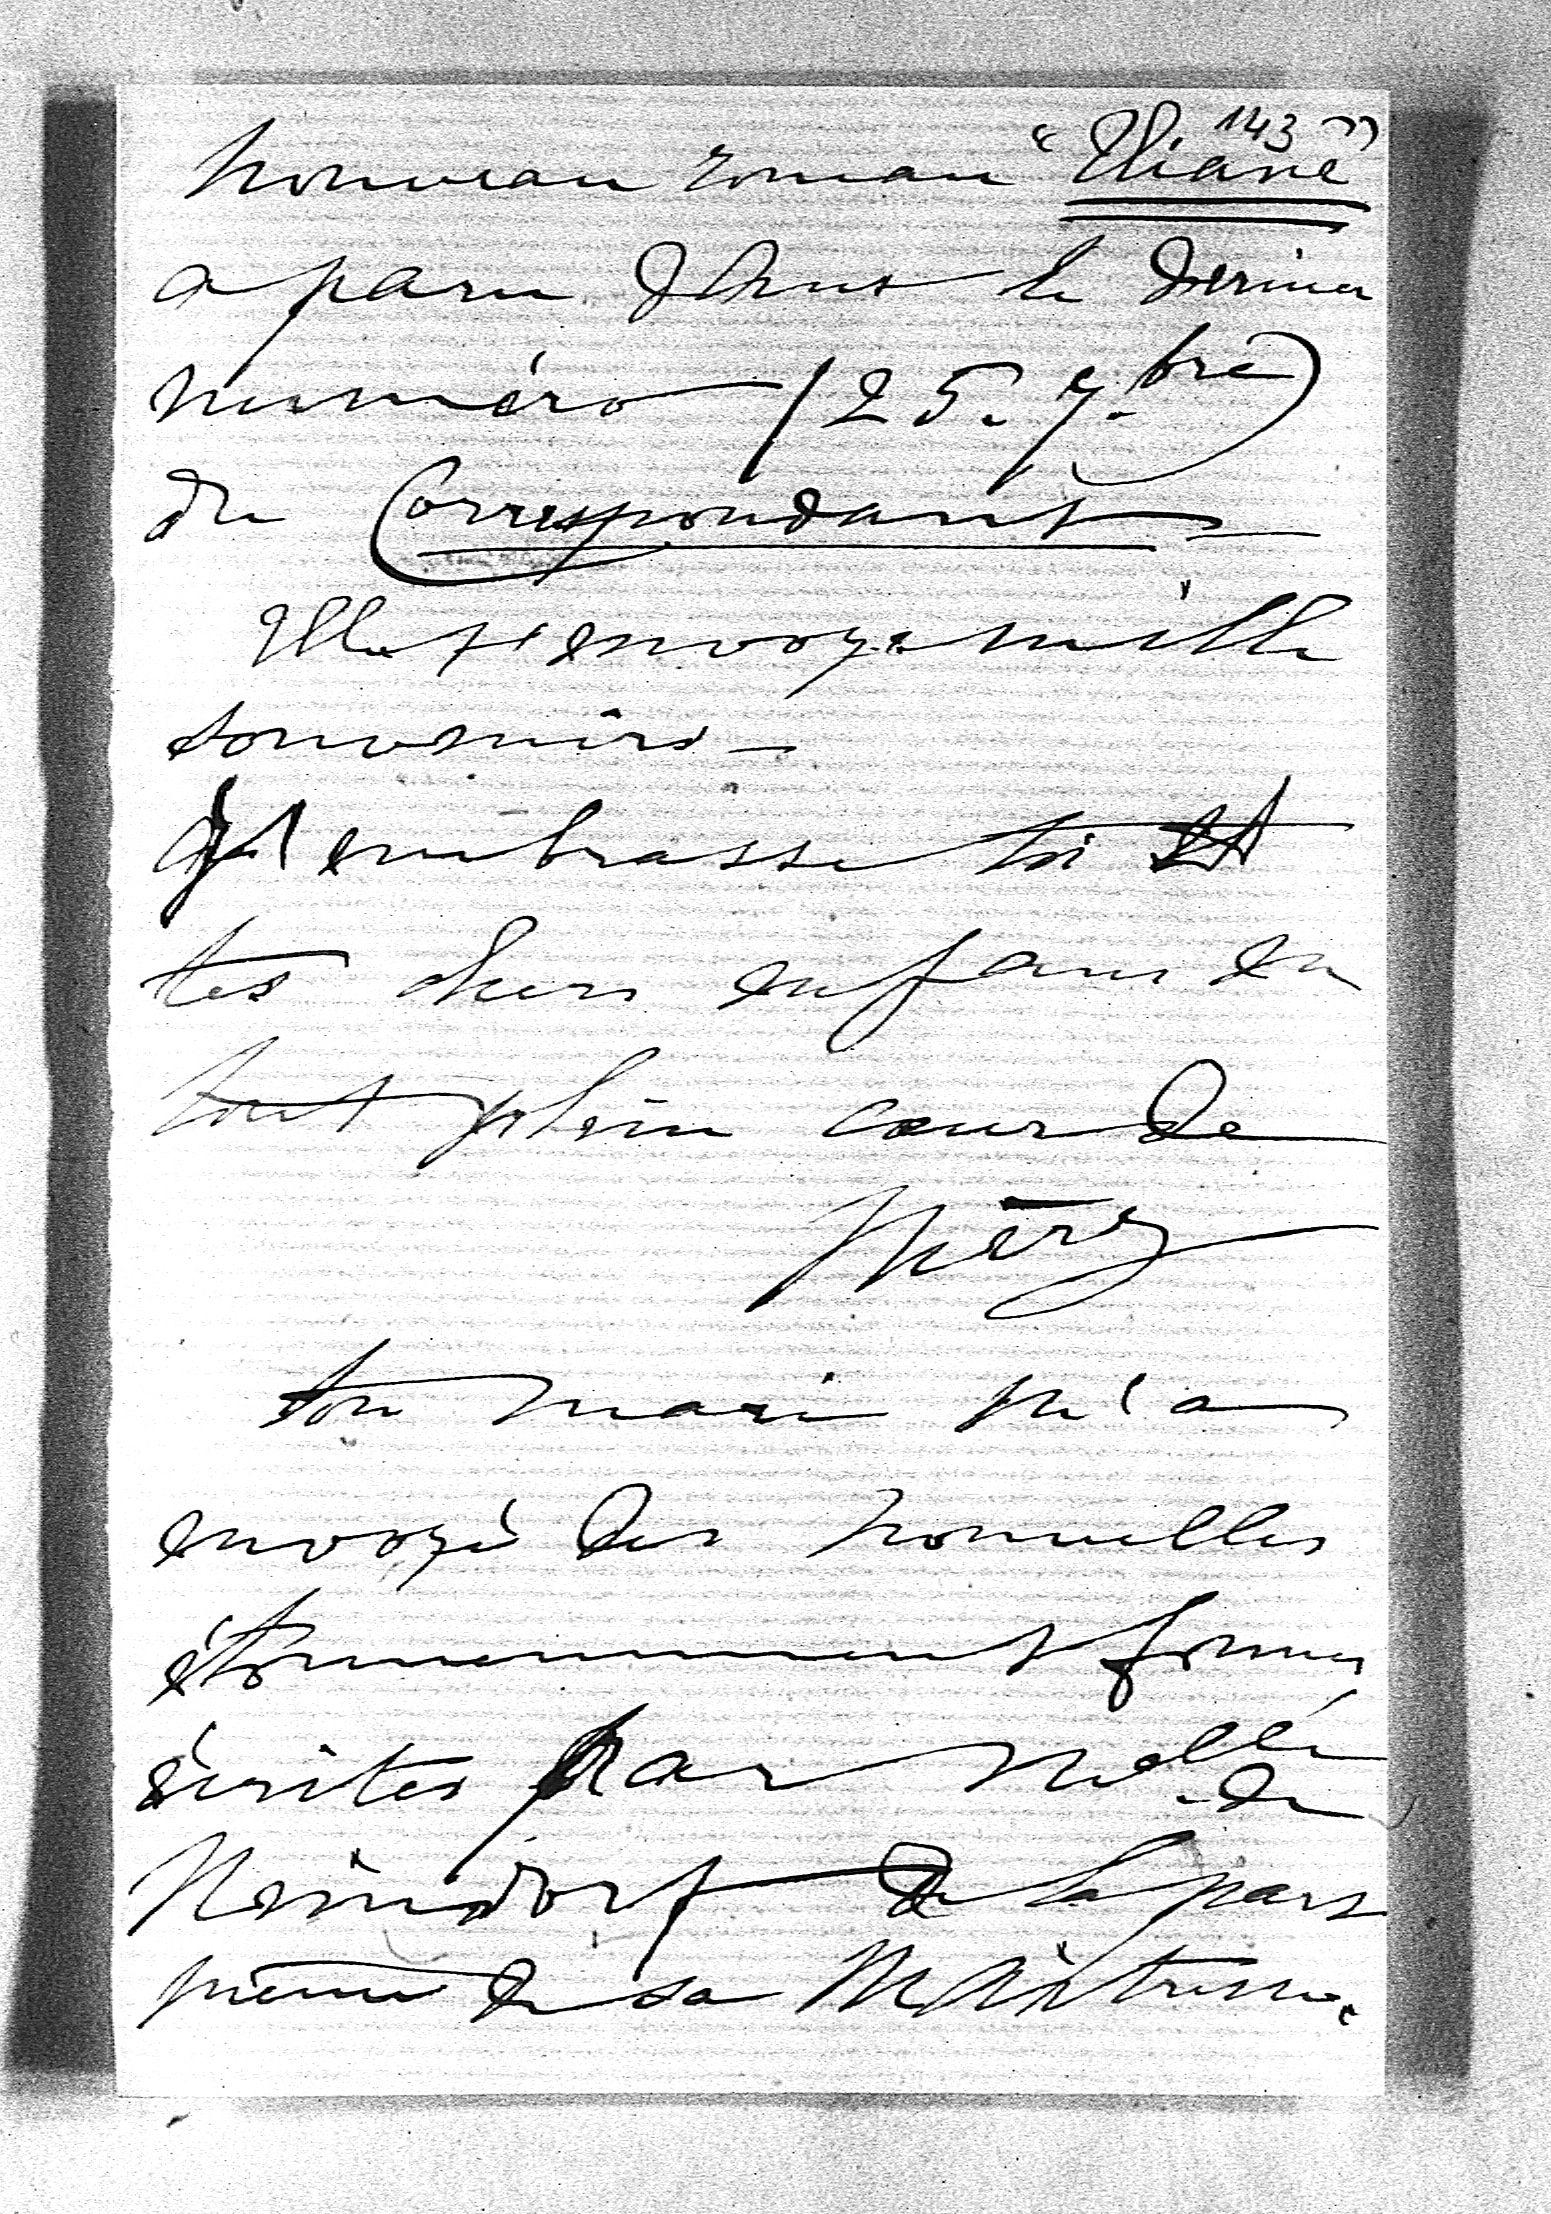 143
nouveau roman "Eliane"
a paru dans le dernier
numéro (25. 7.bre)
du Correspondant –
Elle t'envoye mille
souvenirs –
J'embrasse toi et
tes chers enfans du
tout plein cœur de
ton mari m'a
envoyé des nouvelles
étonnemment bonnes
écrites par Melle de
Neindorf de la part
même de sa Maîtresse.